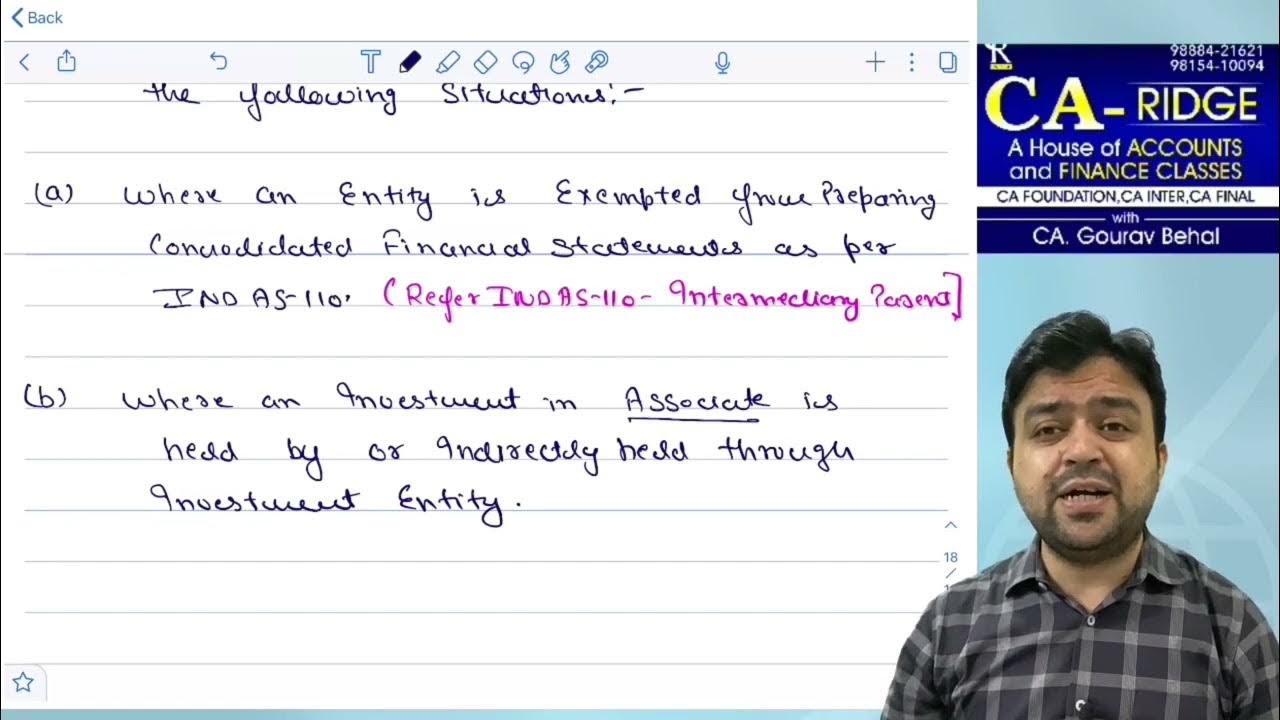 Back
the following Situations:-
(a) Where an Entity is Exempted from Preparing
Consolidated Financial Statements as per
INDAS-110. (Refer INDAS-110- Intermediary Parent]
(b) Where an Investment in Associate is
held by or Indirectly held through
Investment Entity.
18
98884-21621
98154-10094
CA-RIDGE
A House of ACCOUNTS
and FINANCE CLASSES
CA FOUNDATION,CA INTER,CA FINAL
with
CA. Gourav Behal